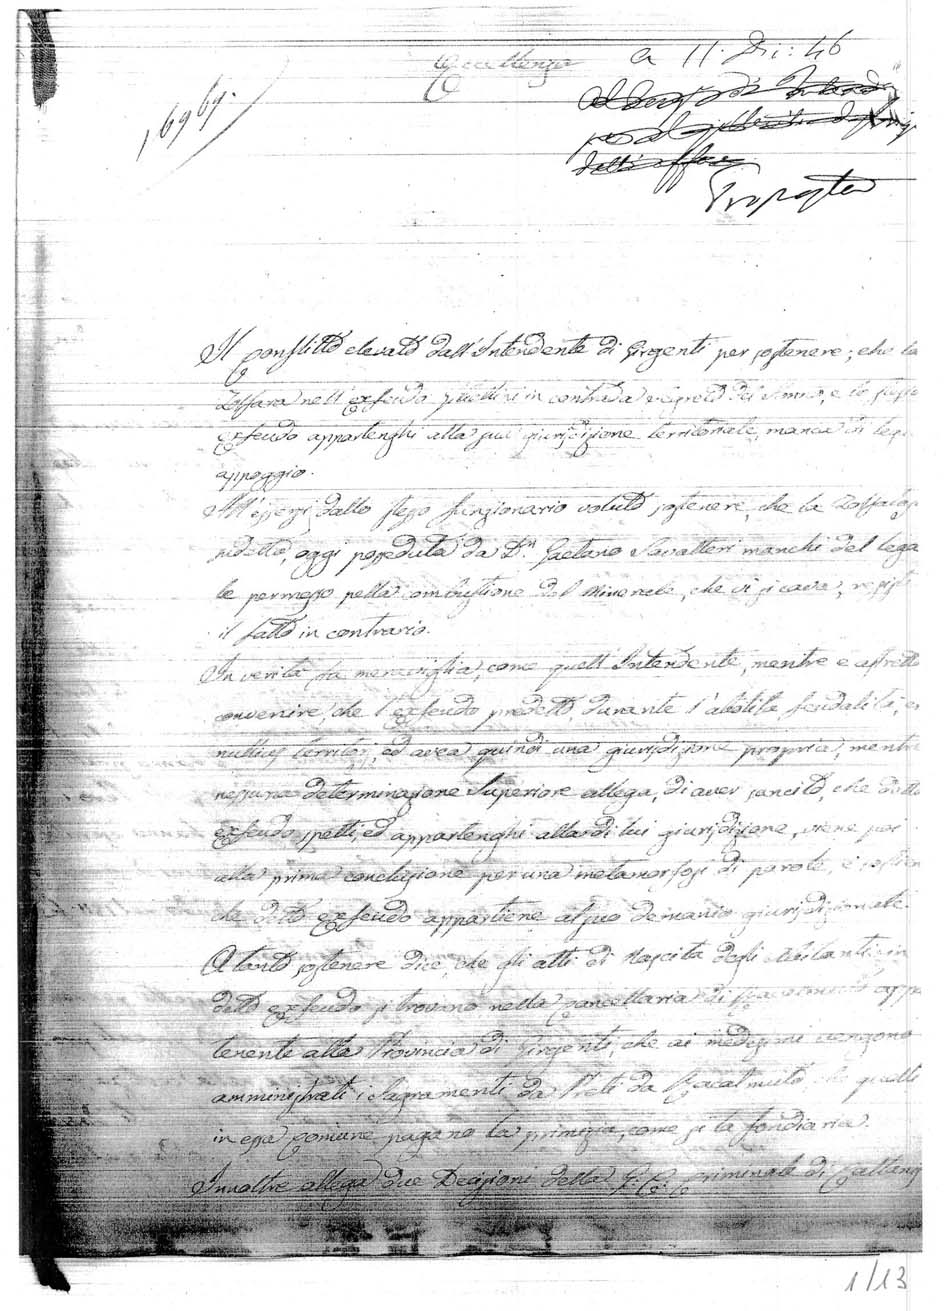 Eccellenza
a 11. Di: 46
16969.
Proposta
Il conflitto elevato dall'Intendente di Girgenti per sostenere, che la
Zolfara nell'exfeudo in contrada del e lo stesso
exfeudo appartenghi alla sua giurisdizione territoriale, manca di lega
appoggio.
All'essersi dallo stesso funzionario voluto sostenere, che la Zolfara
sudetta, oggi posseduta da Dn. Gaetano Savatteri manchi del lega
le permesso pella combustione del minerale, che vi si cava, resist
il fatto in contrario.
In verità fa meraviglia, come quell'Intendente, mentre e astretto
convenire, che l'exfeudo predetto, durante l'abolita feudalità, e
nullius territorj, ed avea quindi una giurisdizione propria, mentre
nessuna determinazione Superiore allega, di aver sancito, che detto
exfeudo spetti, ed appartenghi alla di lui giurisdizione, viene poi
alla prima conclusione per una metamorfosi di parole, e sostien
che detto exfeudo appartiene al suo demanio giurisdizionale.
A tanto sostenere dice, che gli atti di Nascita degli abitanti in
detto exfeudo si trovano nella cancellaria di Racalmuto appa
tenente alla Provincia di Girgenti, che ai medesimi vengono
amministrati i Sagramenti da Preti da Racalmuto, che quelli
in essa comune pagano la primizia, come si la fondiaria.
Inoltre allega due Decisioni della G. C. Criminale di Caltanis
1/13